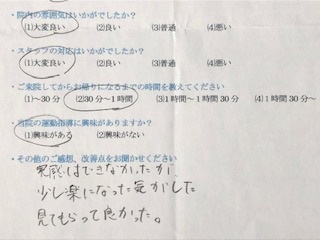 ・院内の雰囲気はいかがでしたか?
(1)大変良い (2)良い (3)普通 (4)悪い
・スタッフの対応はいかがでしたか?
(1)大変良い (2)良い (3)普通 (4)悪い
・ご来院してからお帰りになるまでの時間を教えてください
(1)~30分 (2)30分~1時間 (3)1時間~1時間30分 (4)1時間30分~
・当院の運動指導に興味がありますか?
(1)興味がある (2)興味がない
・その他のご感想、改善点をお聞かせください
実感はできなかったが、
少し楽になった気がした
見てもらって良かった。